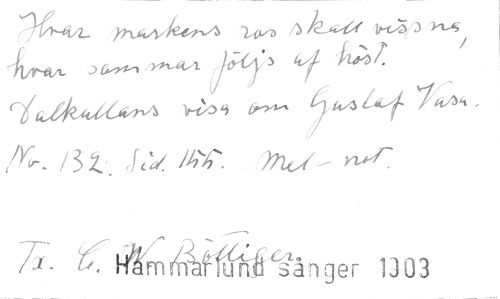 Hvar markens ros skall vissna,
hvar sommar följs af höst.
Dalkullans visa om Gustaf Vasa.
No. 132. Sid. 155. Mel-not.
Tx. C. W Böttiger.
Hammarlund sånger 1903